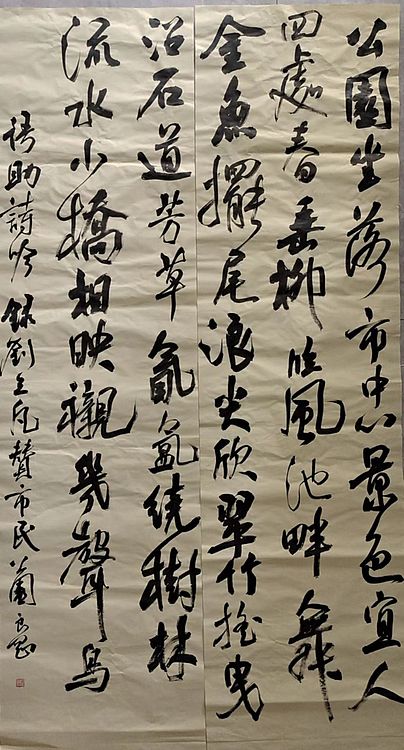 公園坐落市中心景色宜人
四處春垂柳臨風池畔舞
金魚擺尾浪尖欣翠竹搖曳
沿石道芳草氤氳繞樹林
流水小橋相映襯幾聲鳥
語助詩吟 錄劉立凡贊市民公園